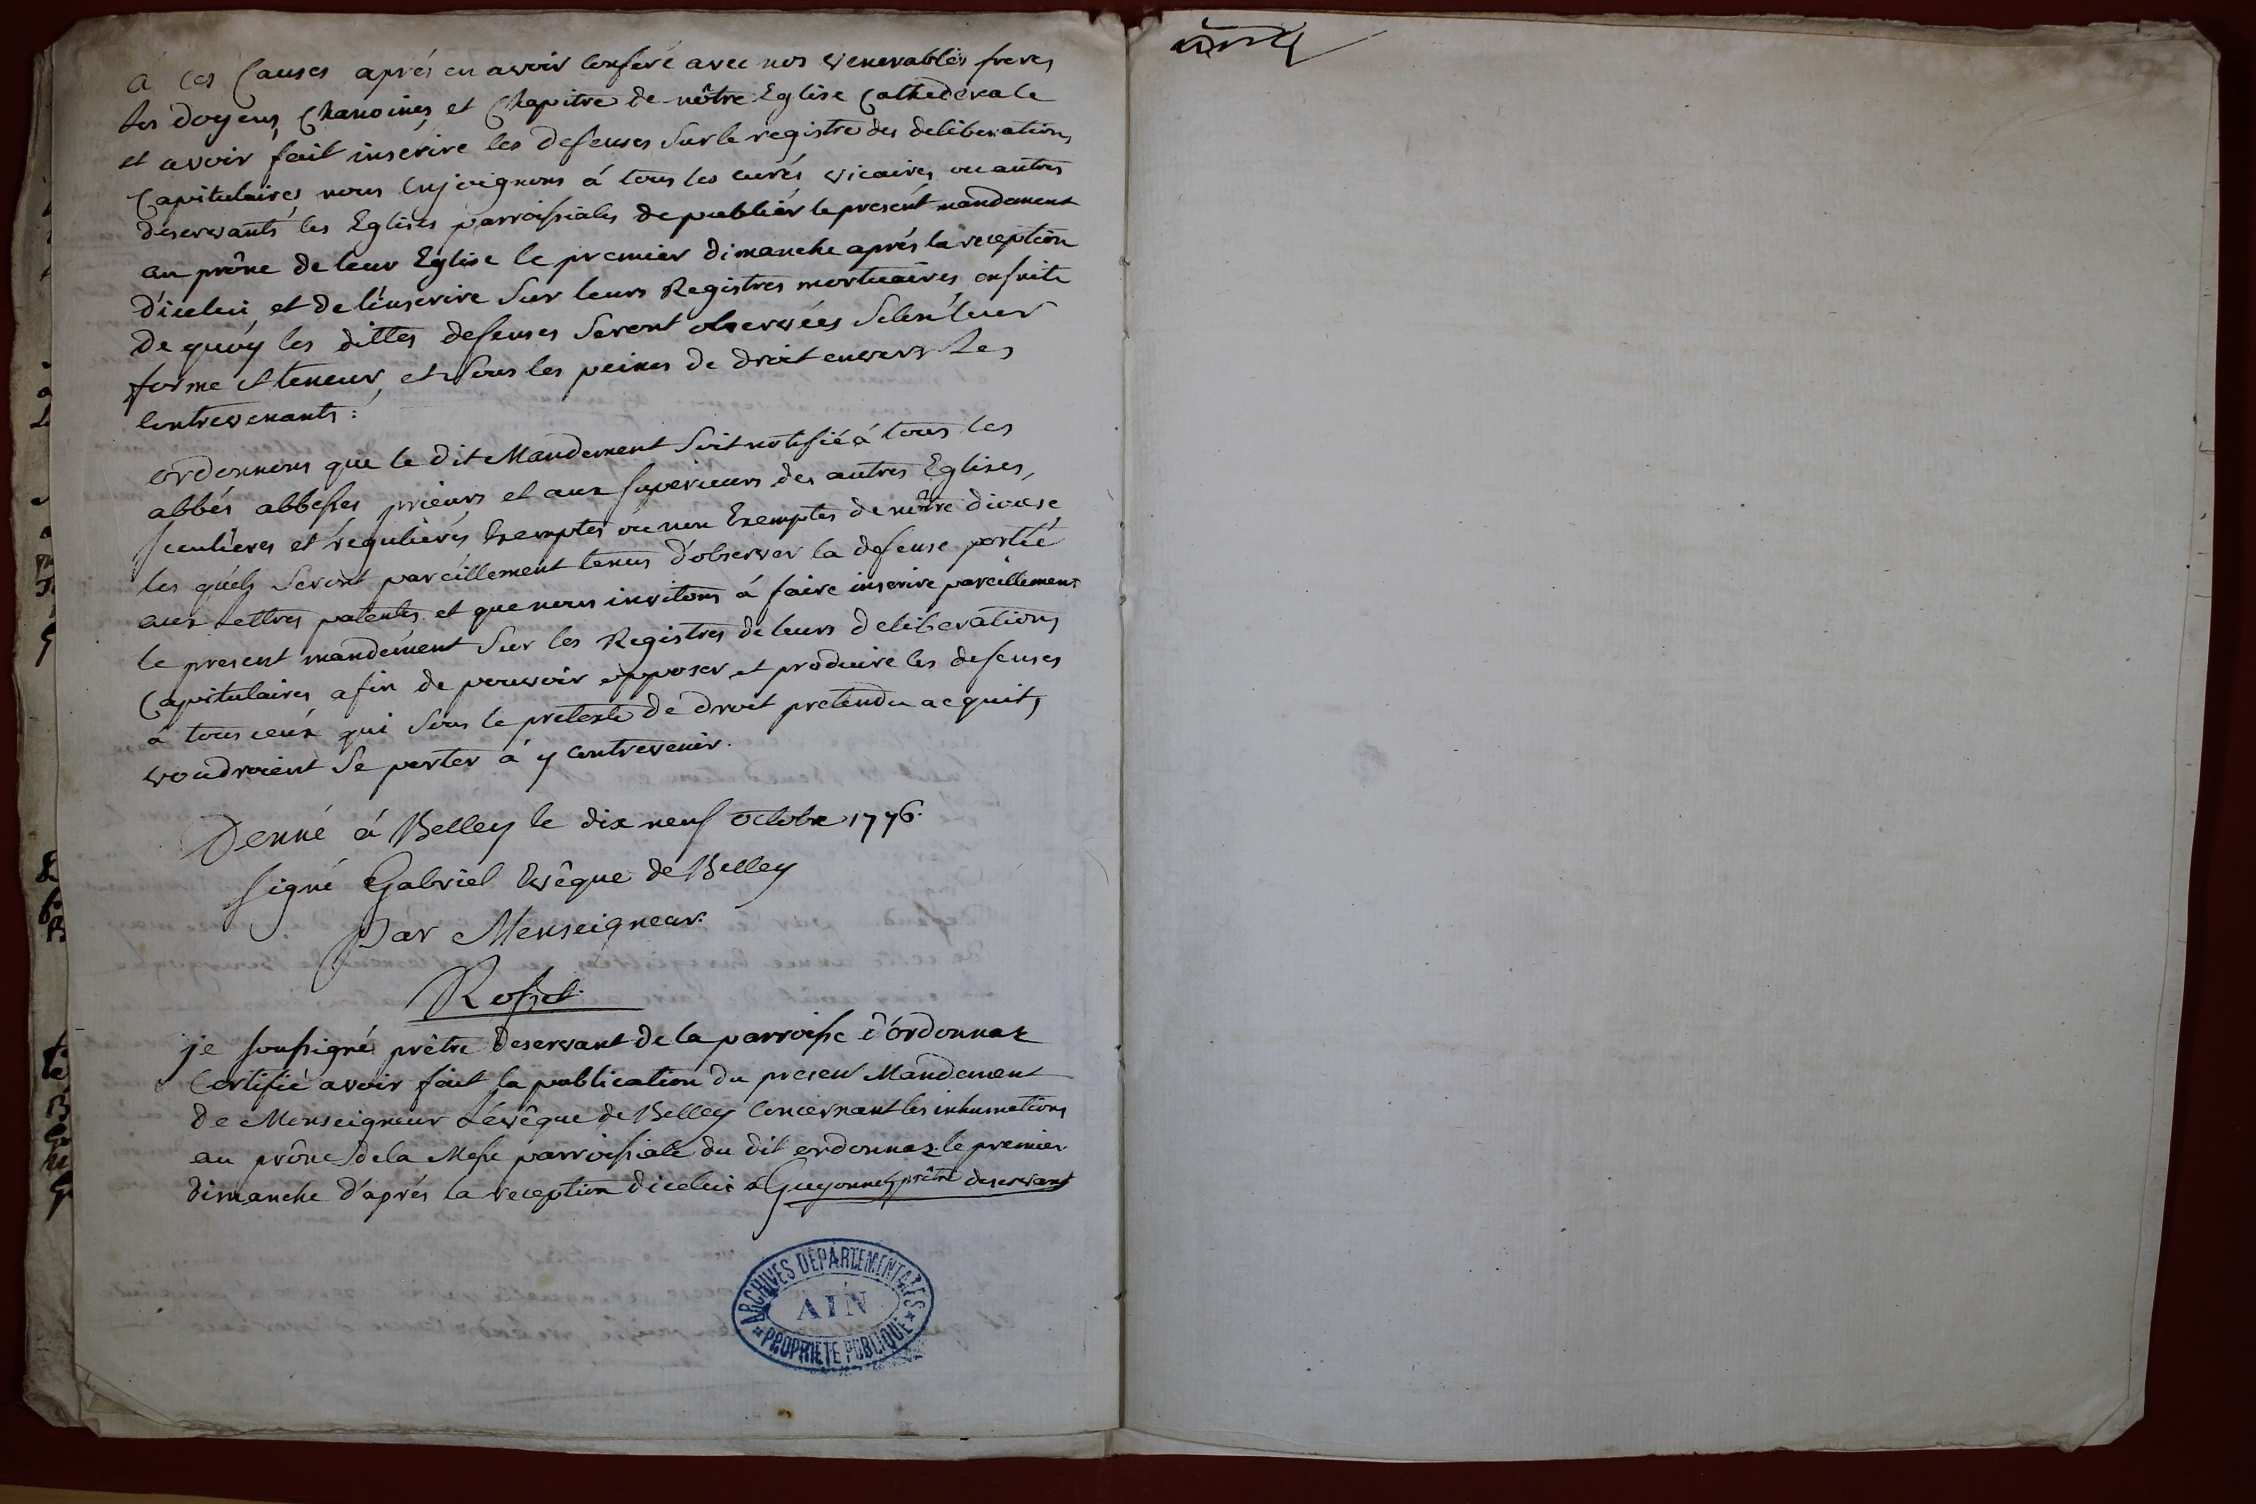 à ces Causes aprés en avoir conferé avec nos venerables freres
les doyens, Chanoines, et Chapitre de nôtre Eglise Cathederale
et avoir fait inscrire les defenses sur le registre des deliberations
Capitulaires, nous Enjoignons á tous les curés vicaires ou autres
deservants les Eglises parroissiales de publiér le presént mandement
au prône de leur Eglise le premier dimanche aprés la reception
d'icelui, et de l'inscrire sur leurs Registres mortuaires, ensuite
de quoÿ les dittes defenses seront observées selon leur
forme et teneur, et sous les peines de droit envers les
contrevenants:
ordonnons que le dit Mandement soit notifié á tous les
abbés abbesses prieurs et aux superieurs des autres Eglises,
seculieres et régulieres Exemptes ou non Exemptes de nôtre diocese
les quéls seront paréillement tenus d'observer la defense portée
aux Lettres patentes et que nous invitons á faire inscrire pareillement
le present mandement sur les Registres de leurs deliberations
Capitulaires afin de pouvoir opposer et produire les defenses
á tous ceux qui sous le pretexte de droit pretendu acquits
voudroient se porter á y contrevenir.
Donné á Belley le dix neuf octobre 1776.
signé Gabriel Evêque de Belley
Par Monseigneur.
Rosset.
je soussigné prêtre deservant de la parroisse d'ordonnaz
Certifie avoir fait la publication du present Mandement
de Monseigneur L'evêque de Belley Concernant les inhumations
au prône de la Messe parroissiale du dit ordonnaz le premier
dimanche d'aprés la reception dicelui Guyonnet prêtre deservant
ARCHIVES DÉPARTEMENTALES
AIN
PROPRIÉTÉ PUBLIQUE